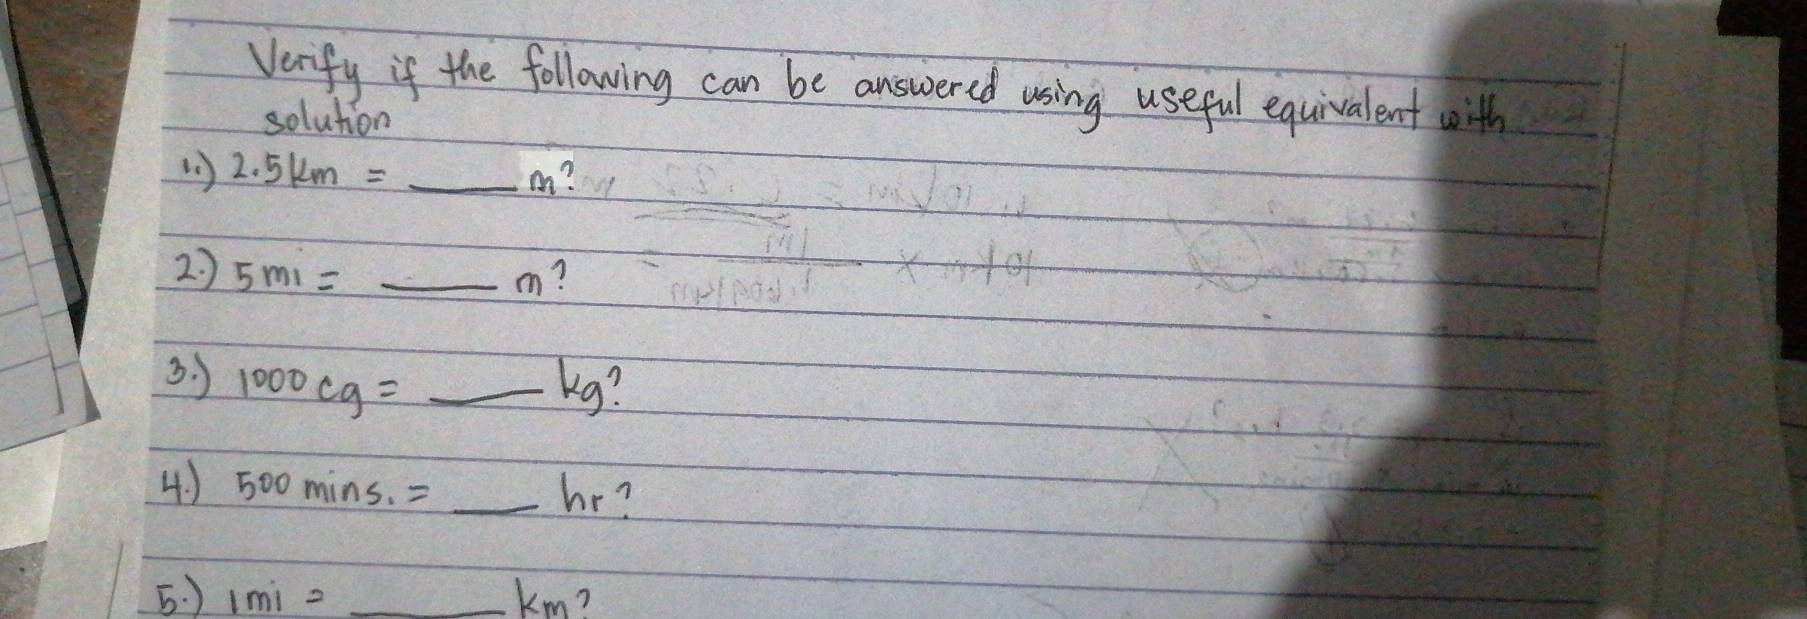 Verify if the following can be answered using useful equivalent with
solution
1.) 2.5 km = ____ m?
2.) 5 mi = ____ m?
3.) 1000 cg = ____ kg?
4.) 500 mins. = ____ hr?
5.) 1 mi = ____ km?